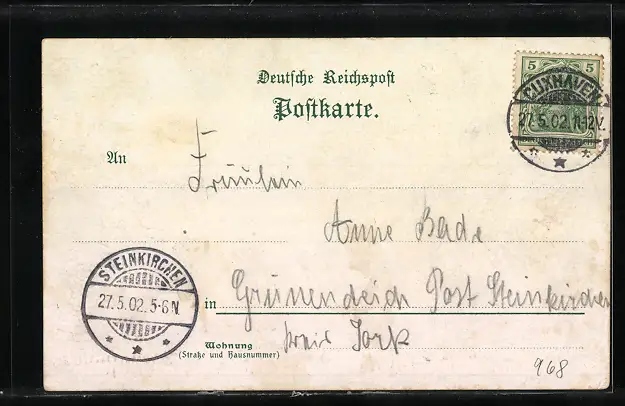 Deutsche Reichspost
Postkarte.
5 5
CUXHAVEN
27.5.02.11-12V.
An
Fräulein
Anne Bade
STEINKIRCHEN
27.5.02.5-6N.
in Grünendeich Post Steinkirchen
Wohnung
(Straße und Hausnummer)
Kreis Jork
968